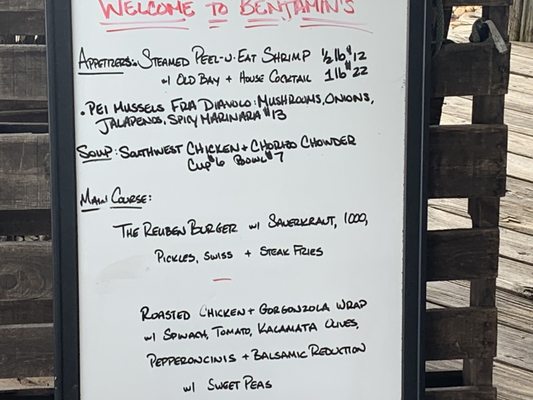 WELCOME TO BENJAMIN'S
APPETIZERS: STEAMED PEEL-N-EAT SHRIMP ½ lb $12
w/ OLD BAY + HOUSE COCKTAIL 1 lb $22
• PEI MUSSELS FRA DIAVOLO: MUSHROOMS, ONIONS,
JALAPENOS, SPICY MARINARA $13
SOUP: SOUTHWEST CHICKEN + CHORIZO CHOWDER
CUP $6 BOWL $7
MAIN COURSE:
THE REUBEN BURGER w/ SAUERKRAUT, 1000,
PICKLES, SWISS + STEAK FRIES
ROASTED CHICKEN + GORGONZOLA WRAP
w/ SPINACH, TOMATO, KALAMATA OLIVES,
PEPPERONCINIS + BALSAMIC REDUCTION
w/ SWEET PEAS